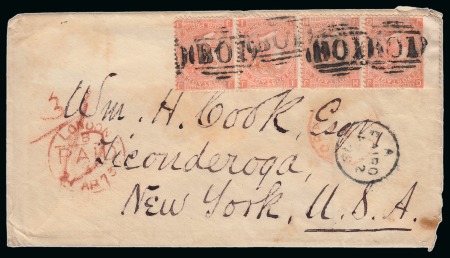 B01 B01 B01 B01
Wm. H. Cook, Esq.
Ticonderoga,
New York, U.S.A.
LONDON
PAID
AP 73
CAIRO
A